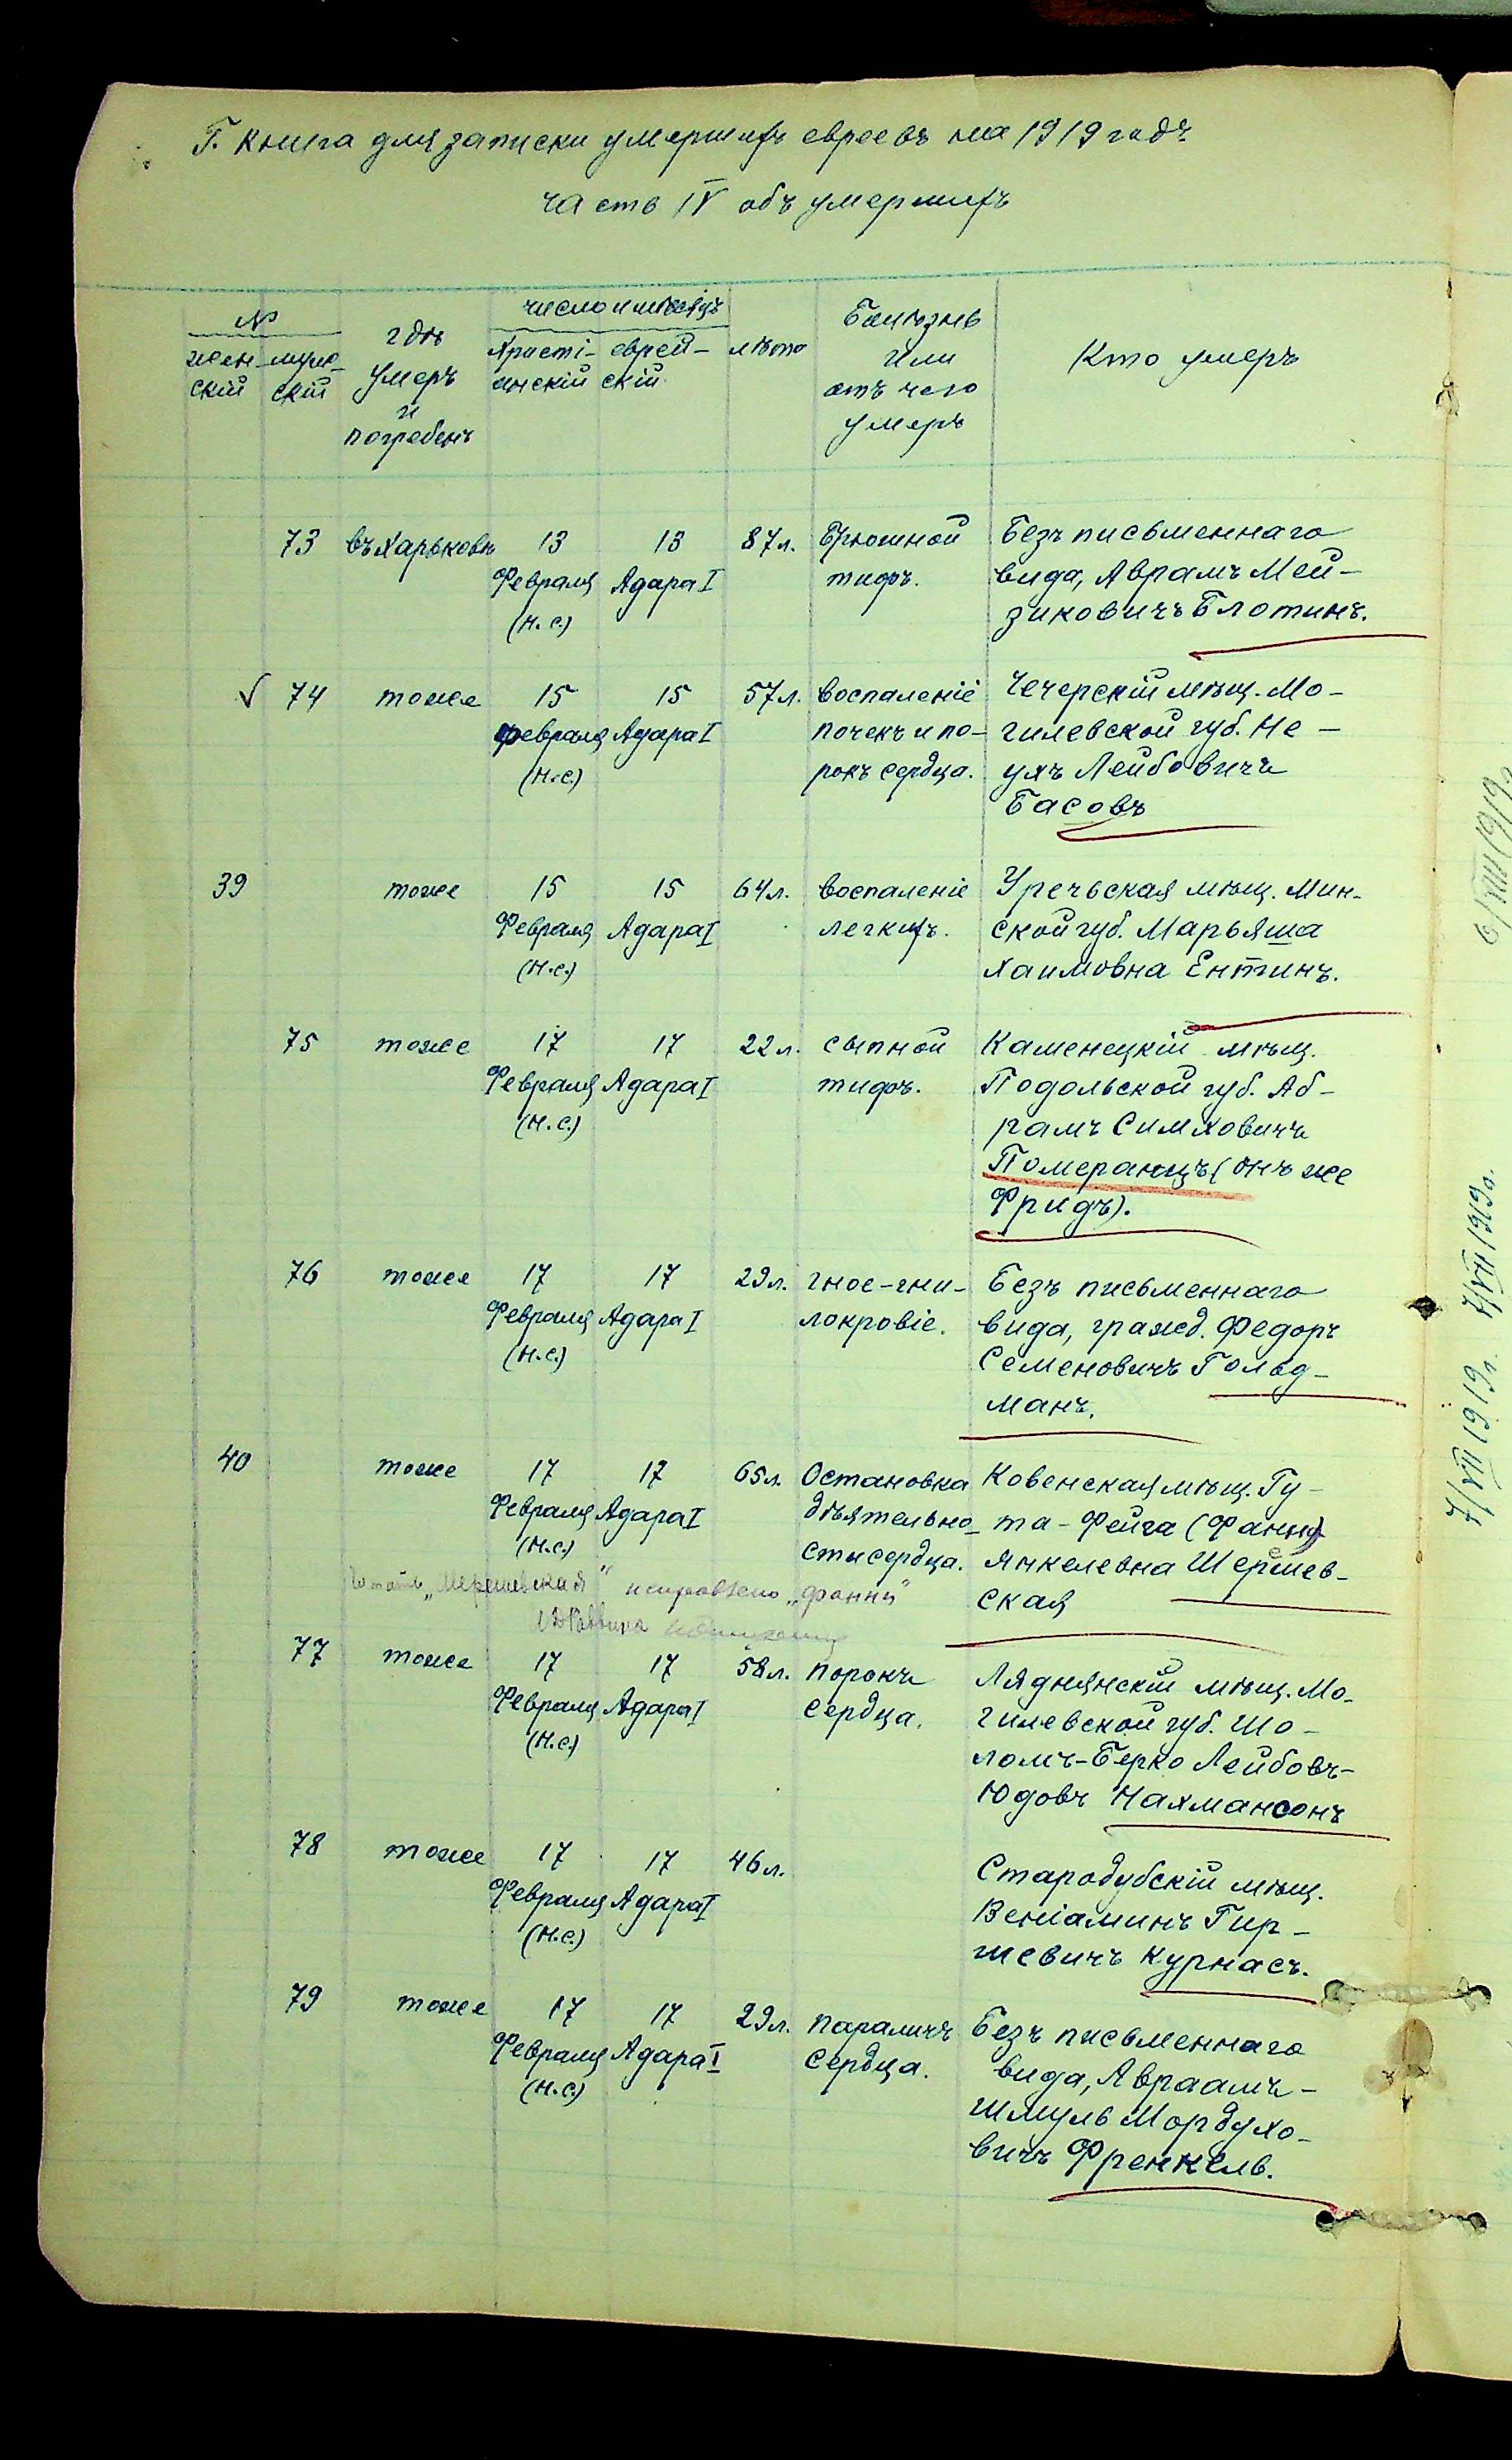 Г. Книга для записки умершихъ евреевъ на 1919 годъ
часть IV объ умершихъ
№
жен-
скій
муж-
скій
гдѣ
умеръ
и
погребенъ
число и мѣсяцъ
Христі-
анскій
еврей-
скій
лѣта
Болѣзнь
или
отъ чего
умеръ
Кто умеръ
73 въ Харьковѣ 13 13 87 л. Брюшной Безъ письменнаго
Февраля Адара I тифъ. вида, Аврамъ Мей-
(н.с.) зиковичъ Блотинъ.
√ 74 тоже 15 15 57 л. воспаленіе Чечерскій мѣщ. Мо-
февраля Адара I почекъ и по- гилевской губ. Не-
(н.с.) рокъ сердца. ухъ Лейбовичъ
Басовъ
39 тоже 15 15 64 л. воспаленіе Уречьская мѣщ. Мин-
Февраля Адара I легкихъ. ской губ. Марьяша
(н.с.) Хаимовна Ентинъ.
75 тоже 17 17 22 л. сыпной Каменецкій мѣщ.
Февраля Адара I тифъ. Подольской губ. Аб-
(н.с.) рамъ Симховичъ
Померанцъ (онъ же
Фридъ).
76 тоже 17 17 29 л. гное-гни- Безъ письменнаго
Февраля Адара I локровіе. вида, гражд. Федоръ
(н.с.) Семеновичъ Гольд-
манъ.
40 тоже 17 17 65 л. Остановка Ковенская мѣщ. Гу-
Февраля Адара I дѣятельно- та-Фейга (Фанни)
(н.с.) сти сердца. Янкелевна Шершев-
ская
"Шершевская" исправлено "Фанни"
Раввина
77 тоже 17 17 58 л. порокъ Ляднянскій мѣщ. Мо-
Февраля Адара I сердца. гилевской губ. Шо-
(н.с.) ломъ-Берко Лейбовъ-
Юдовъ Нахмансонъ
78 тоже 17 17 46 л. Стародубскій мѣщ.
Февраля Адара I Веніаминъ Гир-
(н.с.) шевичъ Курнасъ.
79 тоже 17 17 29 л. параличъ Безъ письменнаго
Февраля Адара I сердца. вида, Авраамъ-
(н.с.) Шмуль Мордухо-
вичъ Френкель.
6/VIII 1919г.
7/VII 1919г.
7/VII 1919г.